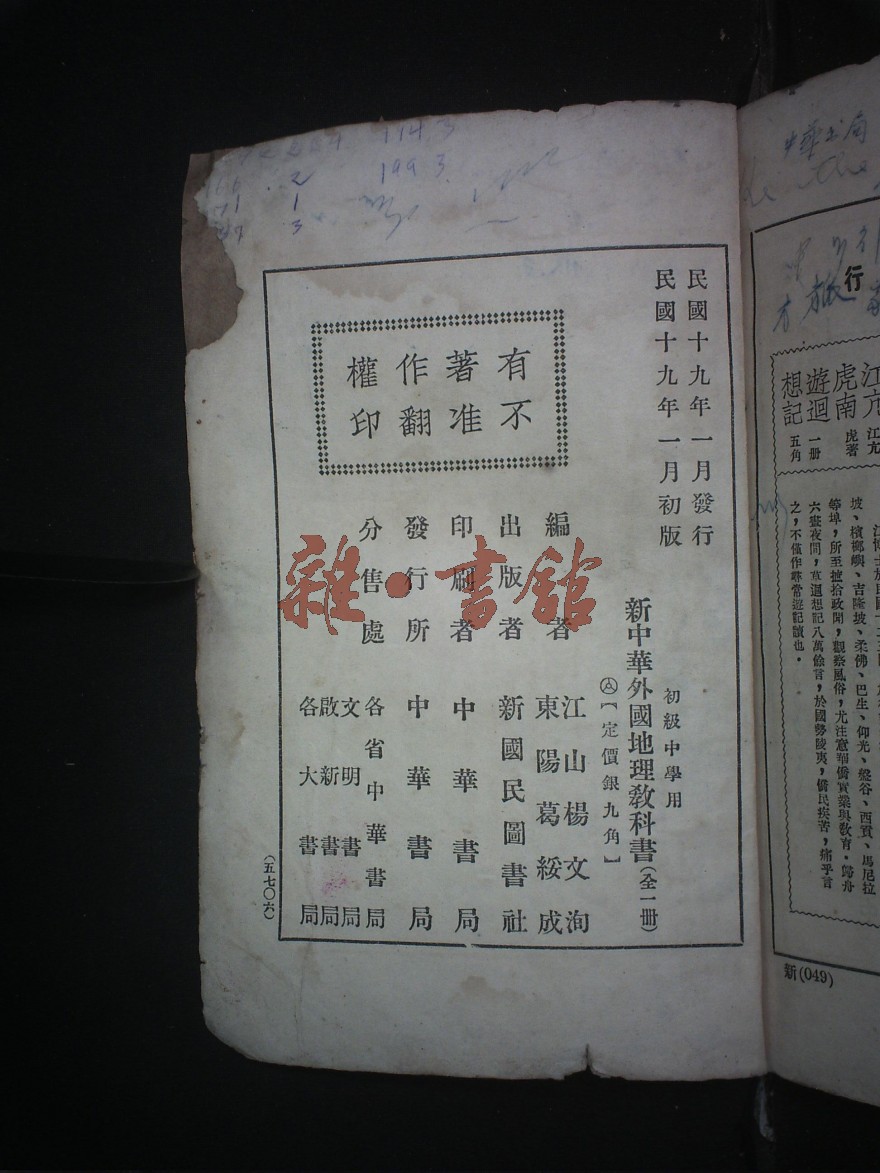 民國十九年一月發行
民國十九年一月初版
初級中學用
新中華外國地理教科書(全一冊)
Ⓐ【定價銀九角】
編者 江山楊文洵
東陽葛綏成
出版者 新國民圖書社
印刷者 中華書局
發行所 中華書局
分售處 各省中華書局
文明書局
啟新書局
各大書局
(五七〇六)
有不
著准
作翻
權印
雜·書館
1993
2
1
3
中華書局
行
江亢
虎南
遊迴
想記
江亢
虎著
一冊
五角
坡、檳榔嶼、吉隆坡、柔佛、巴生、仰光、盤谷、西貢、馬尼拉
等埠,所至摭拾政聞,觀察風俗,尤注意華僑實業與教育.歸舟
六晝夜間,草迴想記八萬餘言,於國勢陵夷,僑民疾苦,痛乎言
之,不僅作尋常遊記讀也.
新(049)